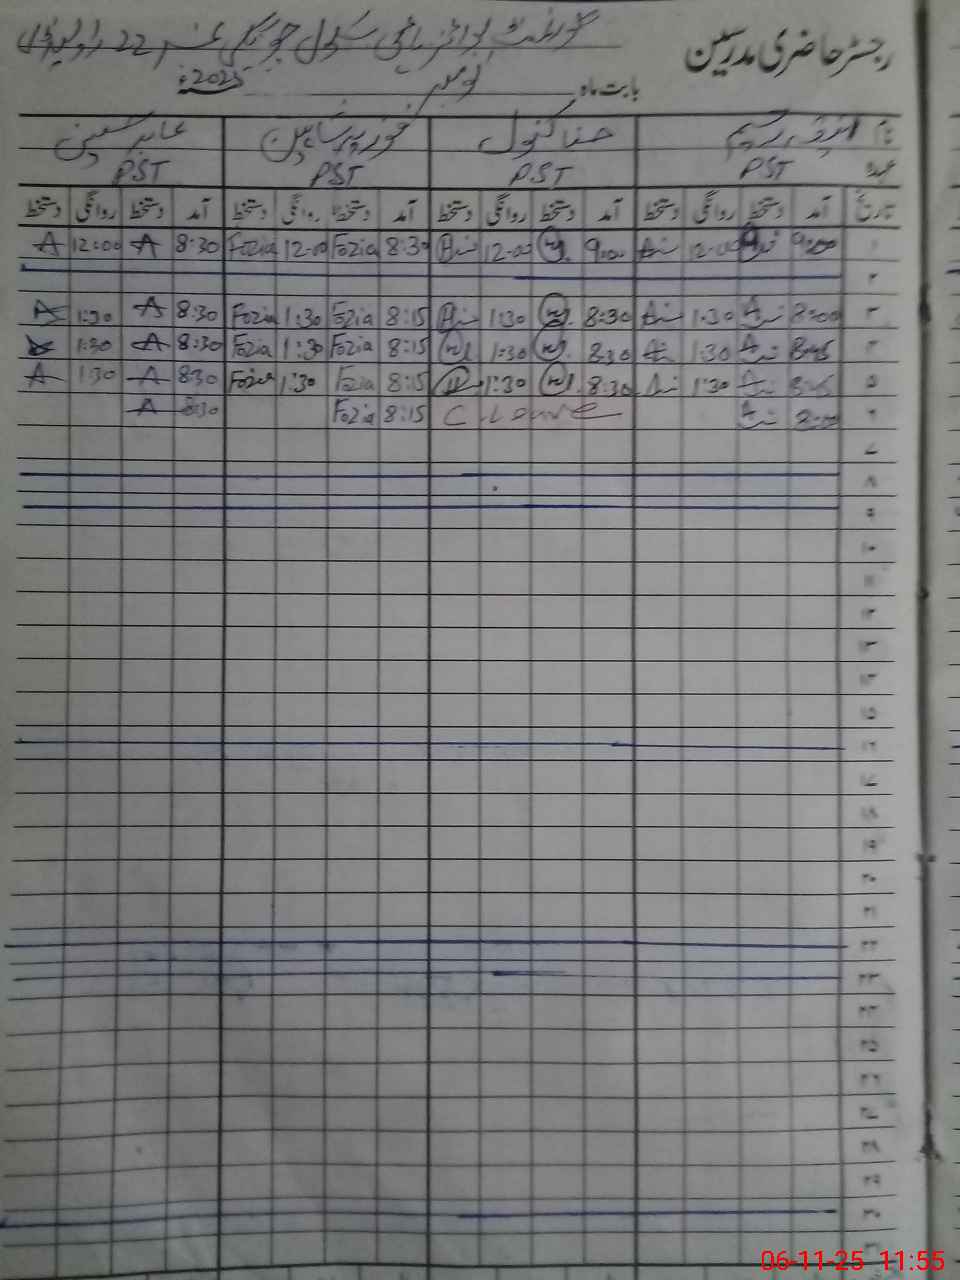 رجسٹر حاضری مدرسین
گورنمنٹ بوائز ہائی سکول نمبر 22 راولپنڈی
بابت ماہ نومبر 2025ء
نام حنا کنول فوزیہ شاہین عابد حسین
عہدہ PST PST PST PST
تاریخ آمد دستخط روانگی دستخط آمد دستخط روانگی دستخط آمد دستخط روانگی دستخط آمد دستخط روانگی دستخط
۱ 9:00 12:00 9:00 12:00 8:30 Fozia 12:00 Fozia 8:30 A 12:00 A
۲
۳ 8:00 1:30 8:30 1:30 8:15 Fozia 1:30 Fozia 8:30 A 1:30 A
۴ 8:45 1:30 8:30 1:30 8:15 Fozia 1:30 Fozia 8:30 A 1:30
۵ 8:45 1:30 8:30 1:30 8:15 Fozia 1:30 Fozia 8:30 A 1:30 A
۶ 8:00 C. Leave 8:15 Fozia 8:30 A
۷
۸
۹
۱۰
۱۱
۱۲
۱۳
۱۴
۱۵
۱۶
۱۷
۱۸
۱۹
۲۰
۲۱
۲۲
۲۳
۲۴
۲۵
۲۶
۲۷
۲۸
۲۹
۳۰
06-11-25 11:55